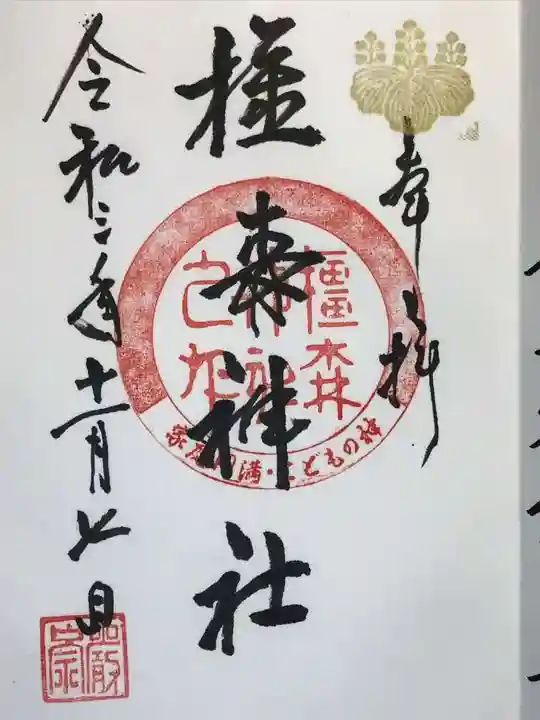 奉拝
橿森神社
令和三年十一月七日
橿森
神社
家庭円満・こどもの神